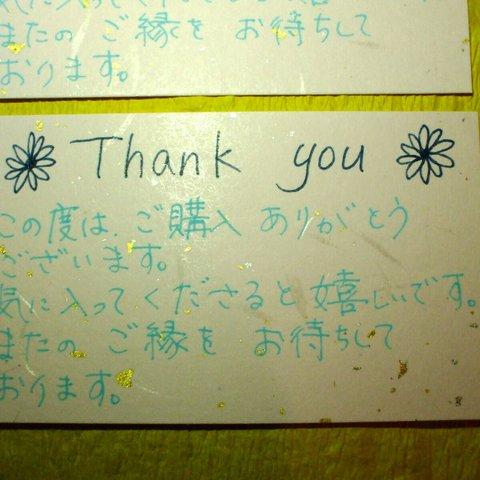 またの ご縁を お待ちして
おります。
Thank you
この度は、ご購入 ありがとう
ございます。
気に入ってくださると嬉しいです。
またの ご縁を お待ちして
おります。